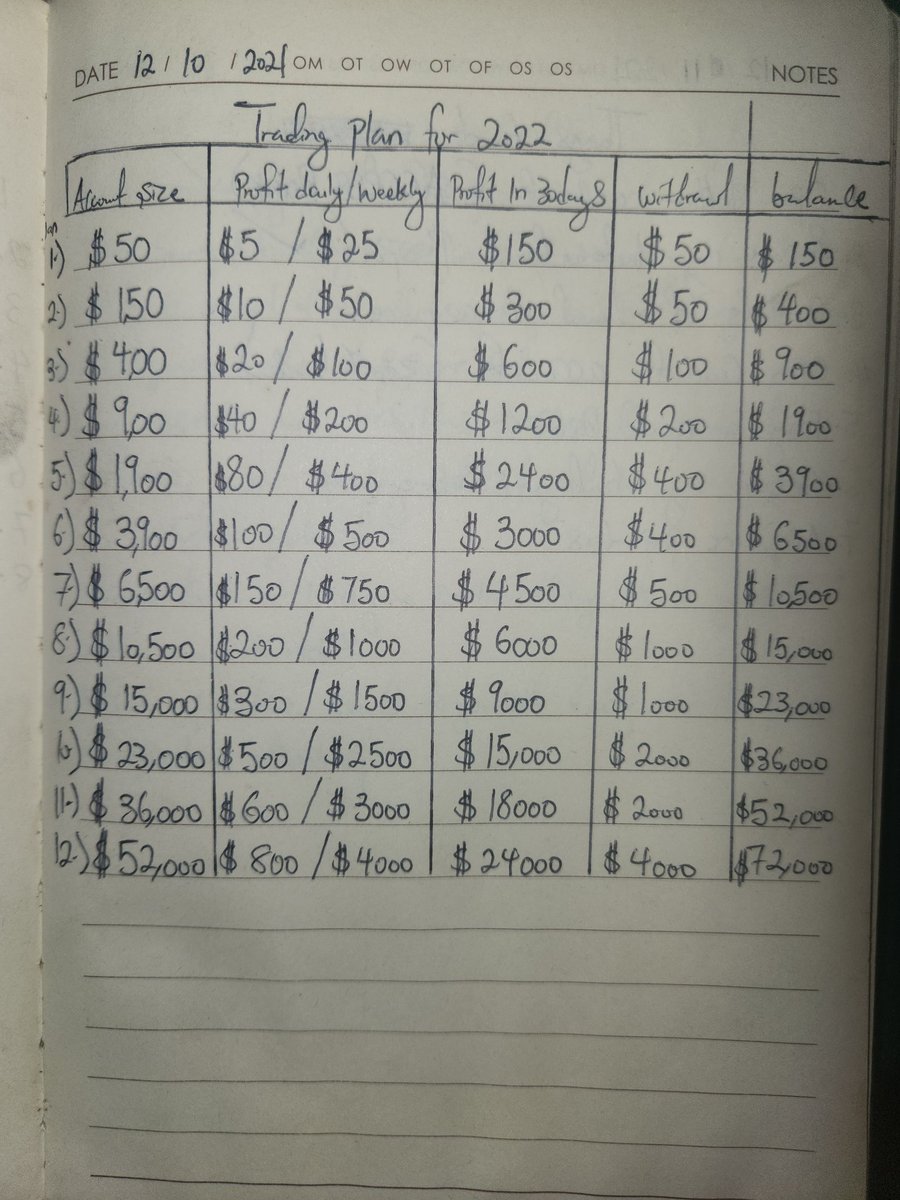 DATE 12 / 10 / 2021 OM OT OW OT OF OS OS NOTES
Trading Plan for 2022
Account Size Profit daily/weekly Profit In 30days Withdrawl balance
Jan
1-) $50 $5 / $25 $150 $50 $150
2-) $150 $10 / $50 $300 $50 $400
3-) $400 $20 / $100 $600 $100 $900
4-) $900 $40 / $200 $1200 $200 $1900
5-) $1,900 $80 / $400 $2400 $400 $3900
6-) $3,900 $100 / $500 $3000 $400 $6500
7-) $6,500 $150 / $750 $4500 $500 $10,500
8-) $10,500 $200 / $1000 $6000 $1000 $15,000
9-) $15,000 $300 / $1500 $9000 $1000 $23,000
10-) $23,000 $500 / $2500 $15,000 $2000 $36,000
11-) $36,000 $600 / $3000 $18000 $2000 $52,000
12-) $52,000 $800 / $4000 $24000 $4000 $72,000